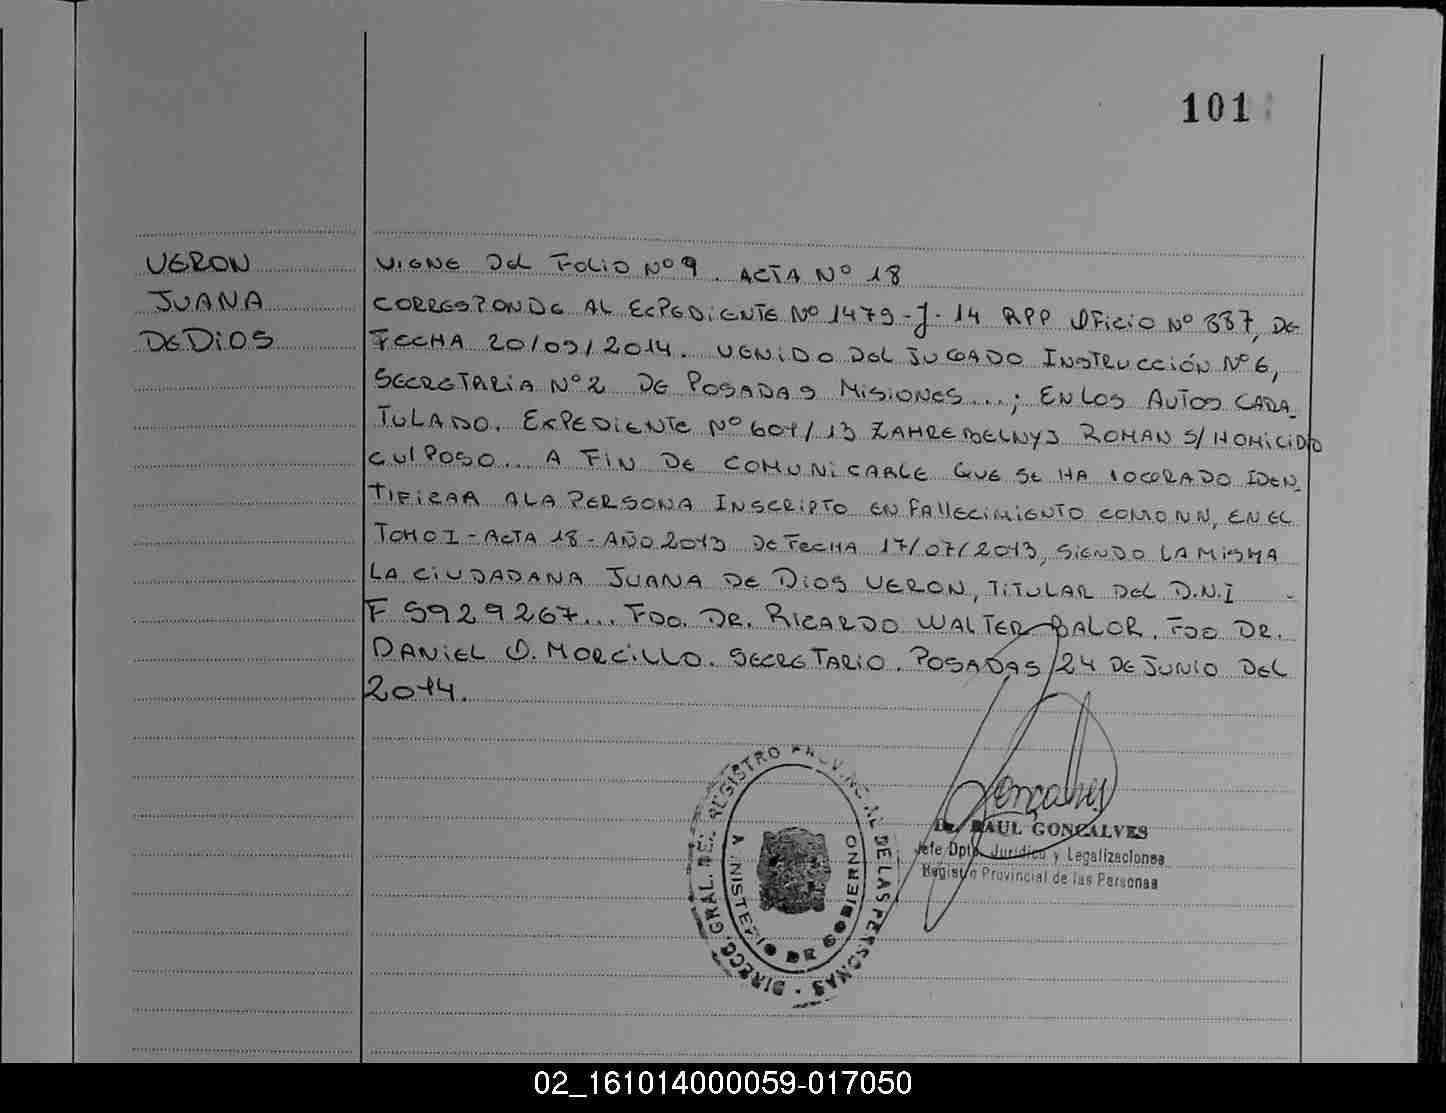 101
VERON
JUANA
DE DIOS
VIENE Del FOLIO Nº 9. ACTA Nº 18
CORRESPONDE AL ECPEDIENTE Nº 1479-J-14 RPP OFICIO Nº 337, DE
FECHA 20/05/2014. VENIDO DEL JUGADO INSTRUCCIÓN Nº 6,
SECRETARIA Nº 2 DE POSADAS MISIONES...; EN LOS AUTOS CARA-
TULADO. EXPEDIENTE Nº 601/13 ROMAN S/ HOMICIDIO
CULPOSO... A FIN DE COMUNICARLE QUE SE HA LOGRADO IDEN-
TIFICAR A LA PERSONA INSCRIPTO EN FALLECIMIENTO COMO NN, EN EL
TOMO I - ACTA 18 - AÑO 2013 DE FECHA 17/07/2013, SIENDO LA MISMA
LA CIUDADANA JUANA DE DIOS VERON, TITULAR DEL D.N.I
F 5929267... FDO. DR. RICARDO WALTER BALOR. FDO DR.
DANIEL O. MORCILLO. SECRETARIO. POSADAS 24 DE JUNIO DEL
2014.
DIRECC. GRAL. DEL REGISTRO PROVINCIAL DE LAS PERSONAS
MINISTERIO DE GOBIERNO
Dr. RAUL GONCALVES
Jefe Dpto. Jurídico y Legalizaciones
Registro Provincial de las Personas
02_161014000059-017050